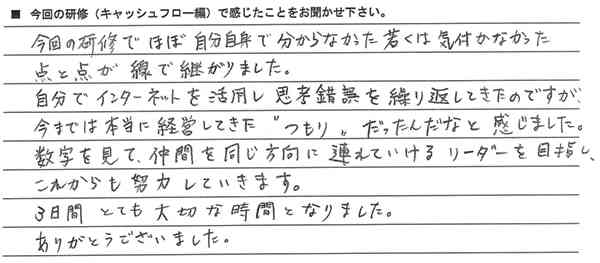 ■ 今回の研修（キャッシュフロー編）で感じたことをお聞かせ下さい。
今回の研修でほぼ自分自身で分からなかった若くは気付かなかった
点と点が線で継がりました。
自分でインターネットを活用し思考錯誤を繰り返してきたのですが、
今までは本当に経営してきた〝つもり〟だったんだなと感じました。
数字を見て、仲間を同じ方向に連れていけるリーダーを目指し、
これからも努力していきます。
3日間とても大切な時間となりました。
ありがとうございました。